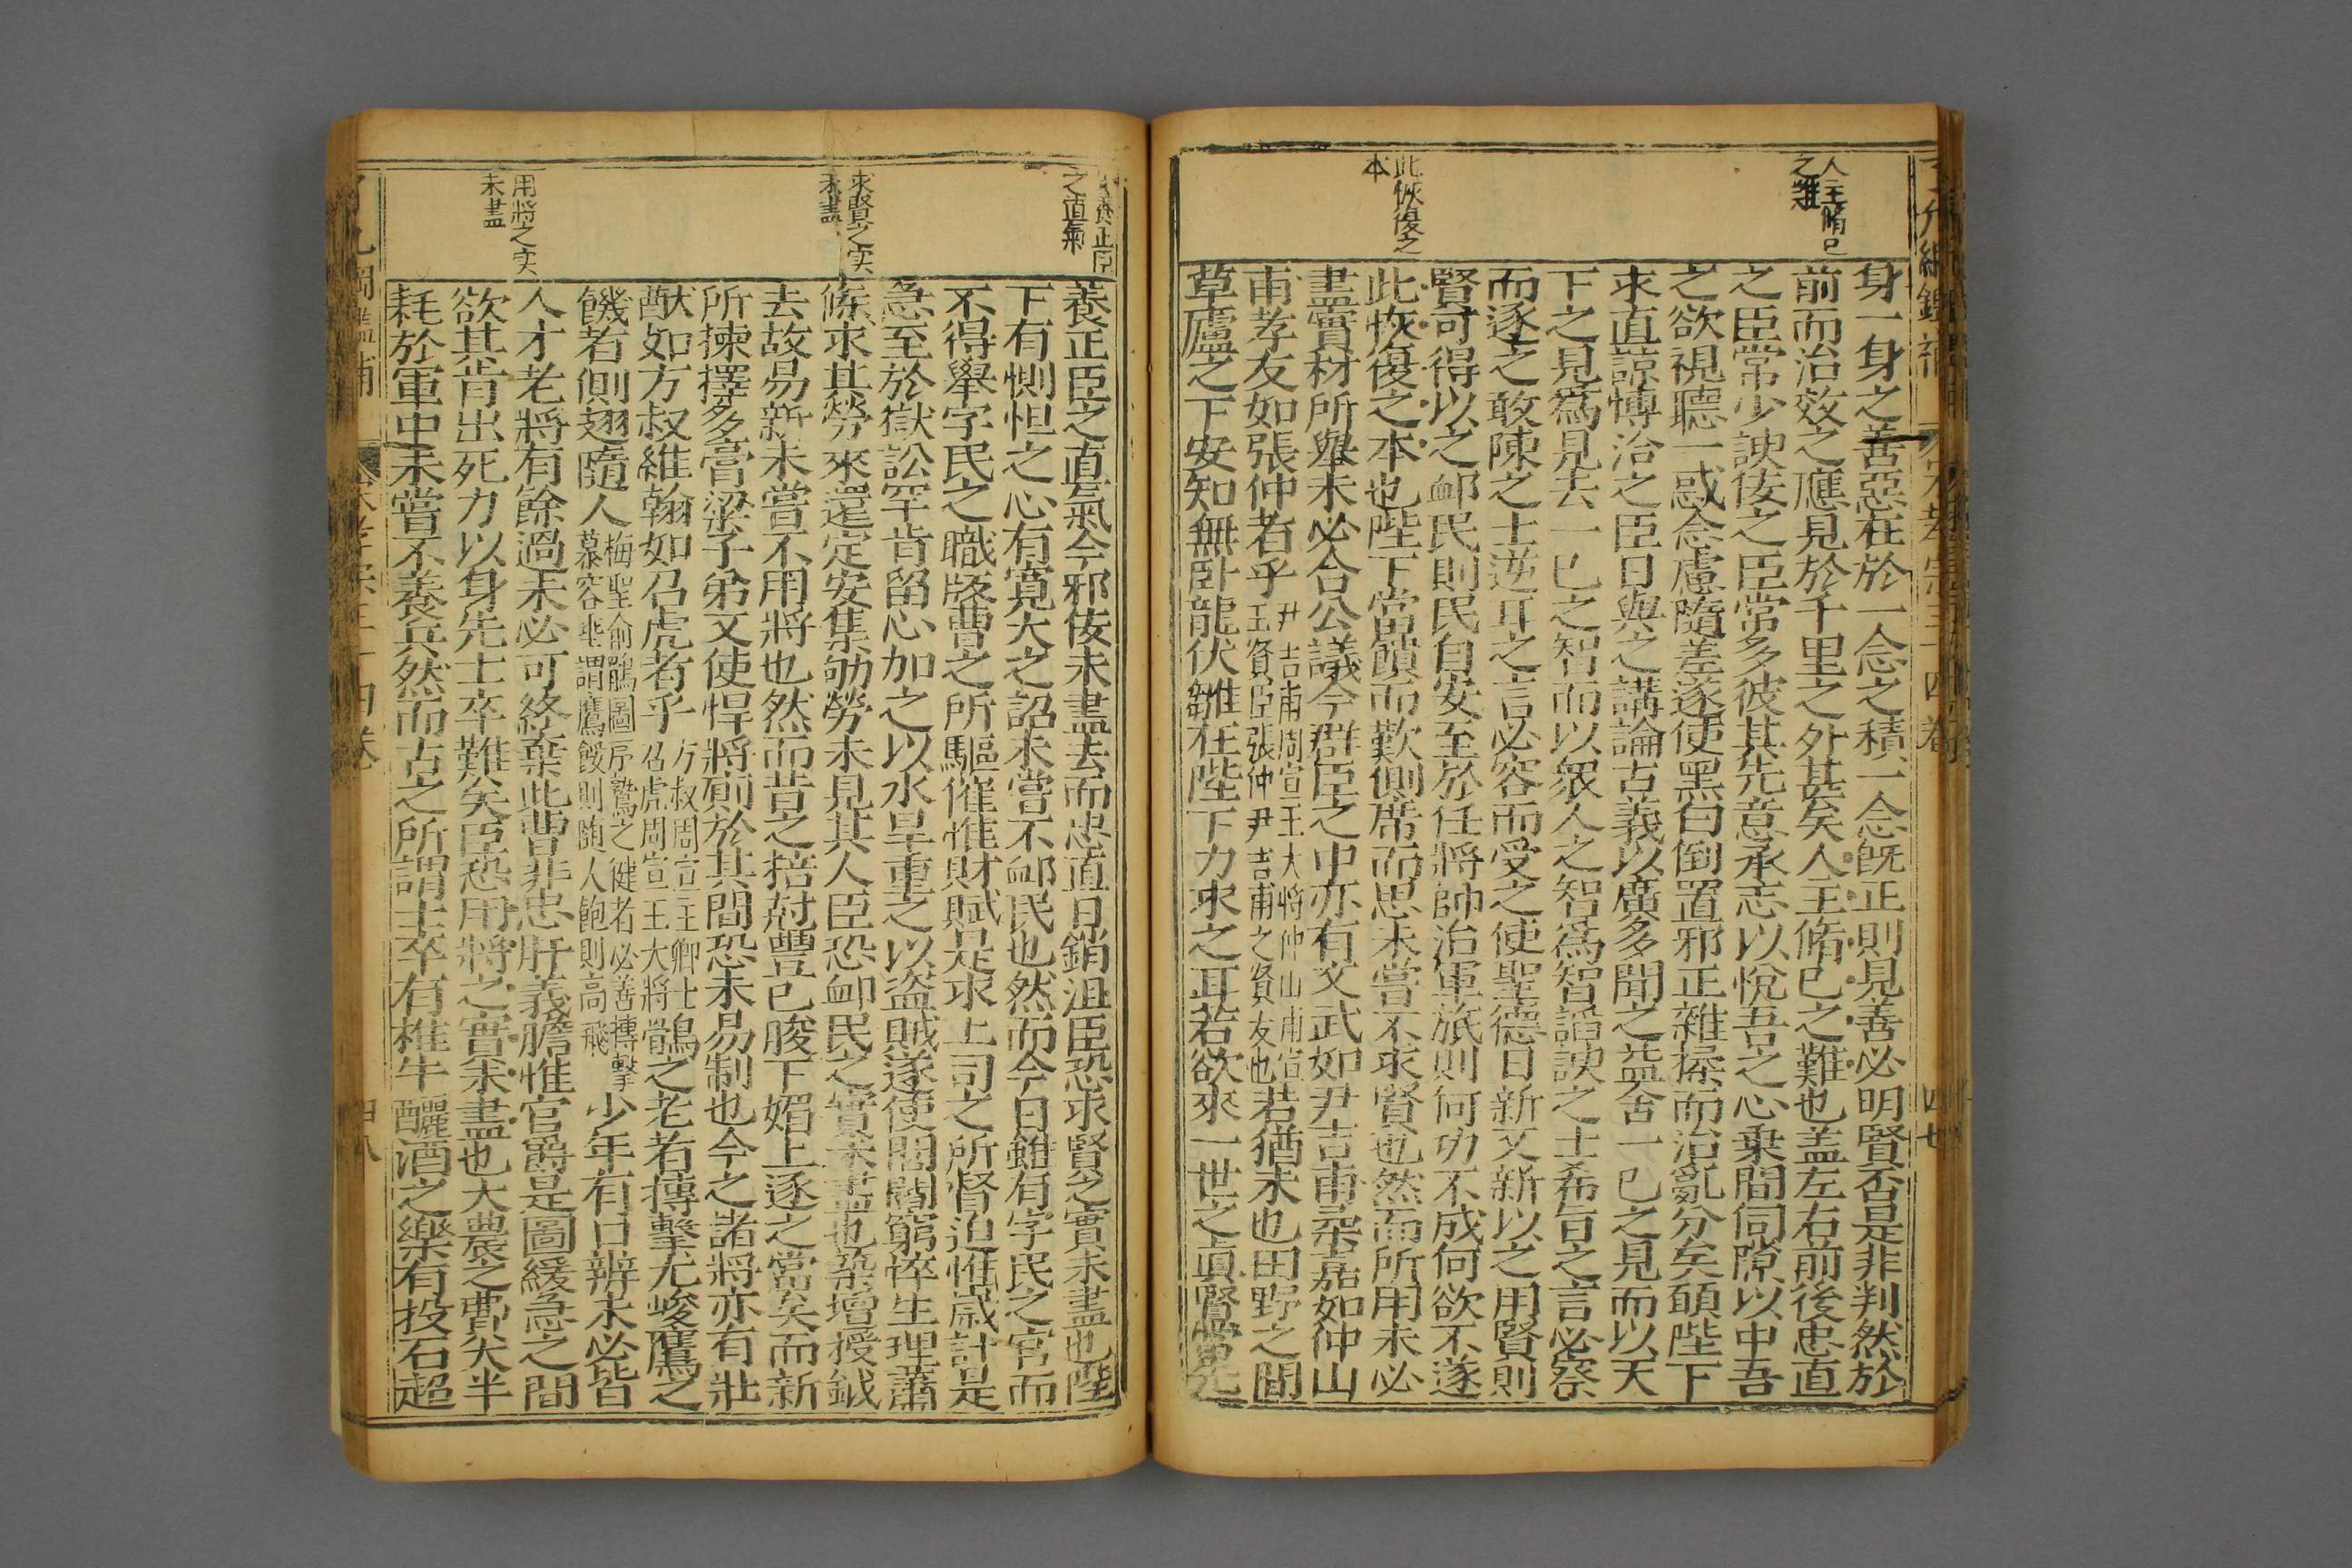 人主脩己
之難
此恢復之
本
身一身之善惡在於一念之積一念既正則見善必明賢否是非判然於
前而治效之應見於千里之外甚矣人主脩已之難也盖左右前後忠直
之臣常少諛佞之臣常多彼其先意承志以悅吾之心乗間伺隙以中吾
之欲視聽一惑念慮隨差遂使黑白倒置邪正雜揉而治亂分矣頋陛下
求直諒愽洽之臣日與之講論古義以廣多聞之益舍一已之見而以天
下之見爲見去一已之智而以衆人之智爲智諂諛之士希旨之言必察
而逐之敢陳之士逆耳之言必容而受之使聖德日新又新以之用賢則
賢可得以之卹民則民自安至於任將帥治軍旅則何功不成何欲不遂
此恢復之本也陛下當饋而歎側席而思未嘗不求賢也然而所用未必
盡實材所舉未必合公議今群臣之中亦有文武如尹吉甫柔嘉如仲山
甫孝友如張仲者乎尹吉甫周宣王大將仲山甫宣
王賢臣張仲尹吉甫之賢友也若猶未也田野之間
草廬之下安知無卧龍伏雛在陛下力求之耳若欲來一世之真賢當先
了凡綱鑑補
四七
養正臣
之直氣
求賢之实
未盡
用將之实
未盡
養正臣之直氣今邪佞未盡去而忠直日銷沮臣恐求賢之實未盡也陛
下有惻怛之心有寬大之詔未嘗不卹民也然而今日雖有字民之官而
不得舉字民之職版曹之所驅催惟財賦是求上司之所督迫惟嵗計是
急至於獄訟罕肯留心加之以水旱重之以盗賊遂使閭閻窮悴生理蕭
條求其勞來還定安集劬勞未見其人臣恐卹民之實未盡也築壇授鉞
去故易新未嘗不用將也然而昔之掊尅豐已朘下媚上逐之當矣而新
所揀擇多膏梁子弟又使悍將厠於其間恐未易制也今之諸將亦有壯
猷如方叔維翰如召虎者乎方叔周宣王卿士
召虎周宣王大將鶻之老者摶擊尤峻鷹之
饑者側翅隨人梅聖俞鶻圖序鷙之健者必善摶擊
慕容垂謂鷹饑則隨人飽則高飛少年有口辨未必皆
人才老將有餘過未必可終棄此曹非忠肝義膽惟官爵是圖緩急之間
欲其肯出死力以身先士卒難矣臣恐用將之實未盡也大農之費大半
耗於軍中未嘗不養兵然而古之所謂士卒有椎牛釃酒之樂有投石超
四八